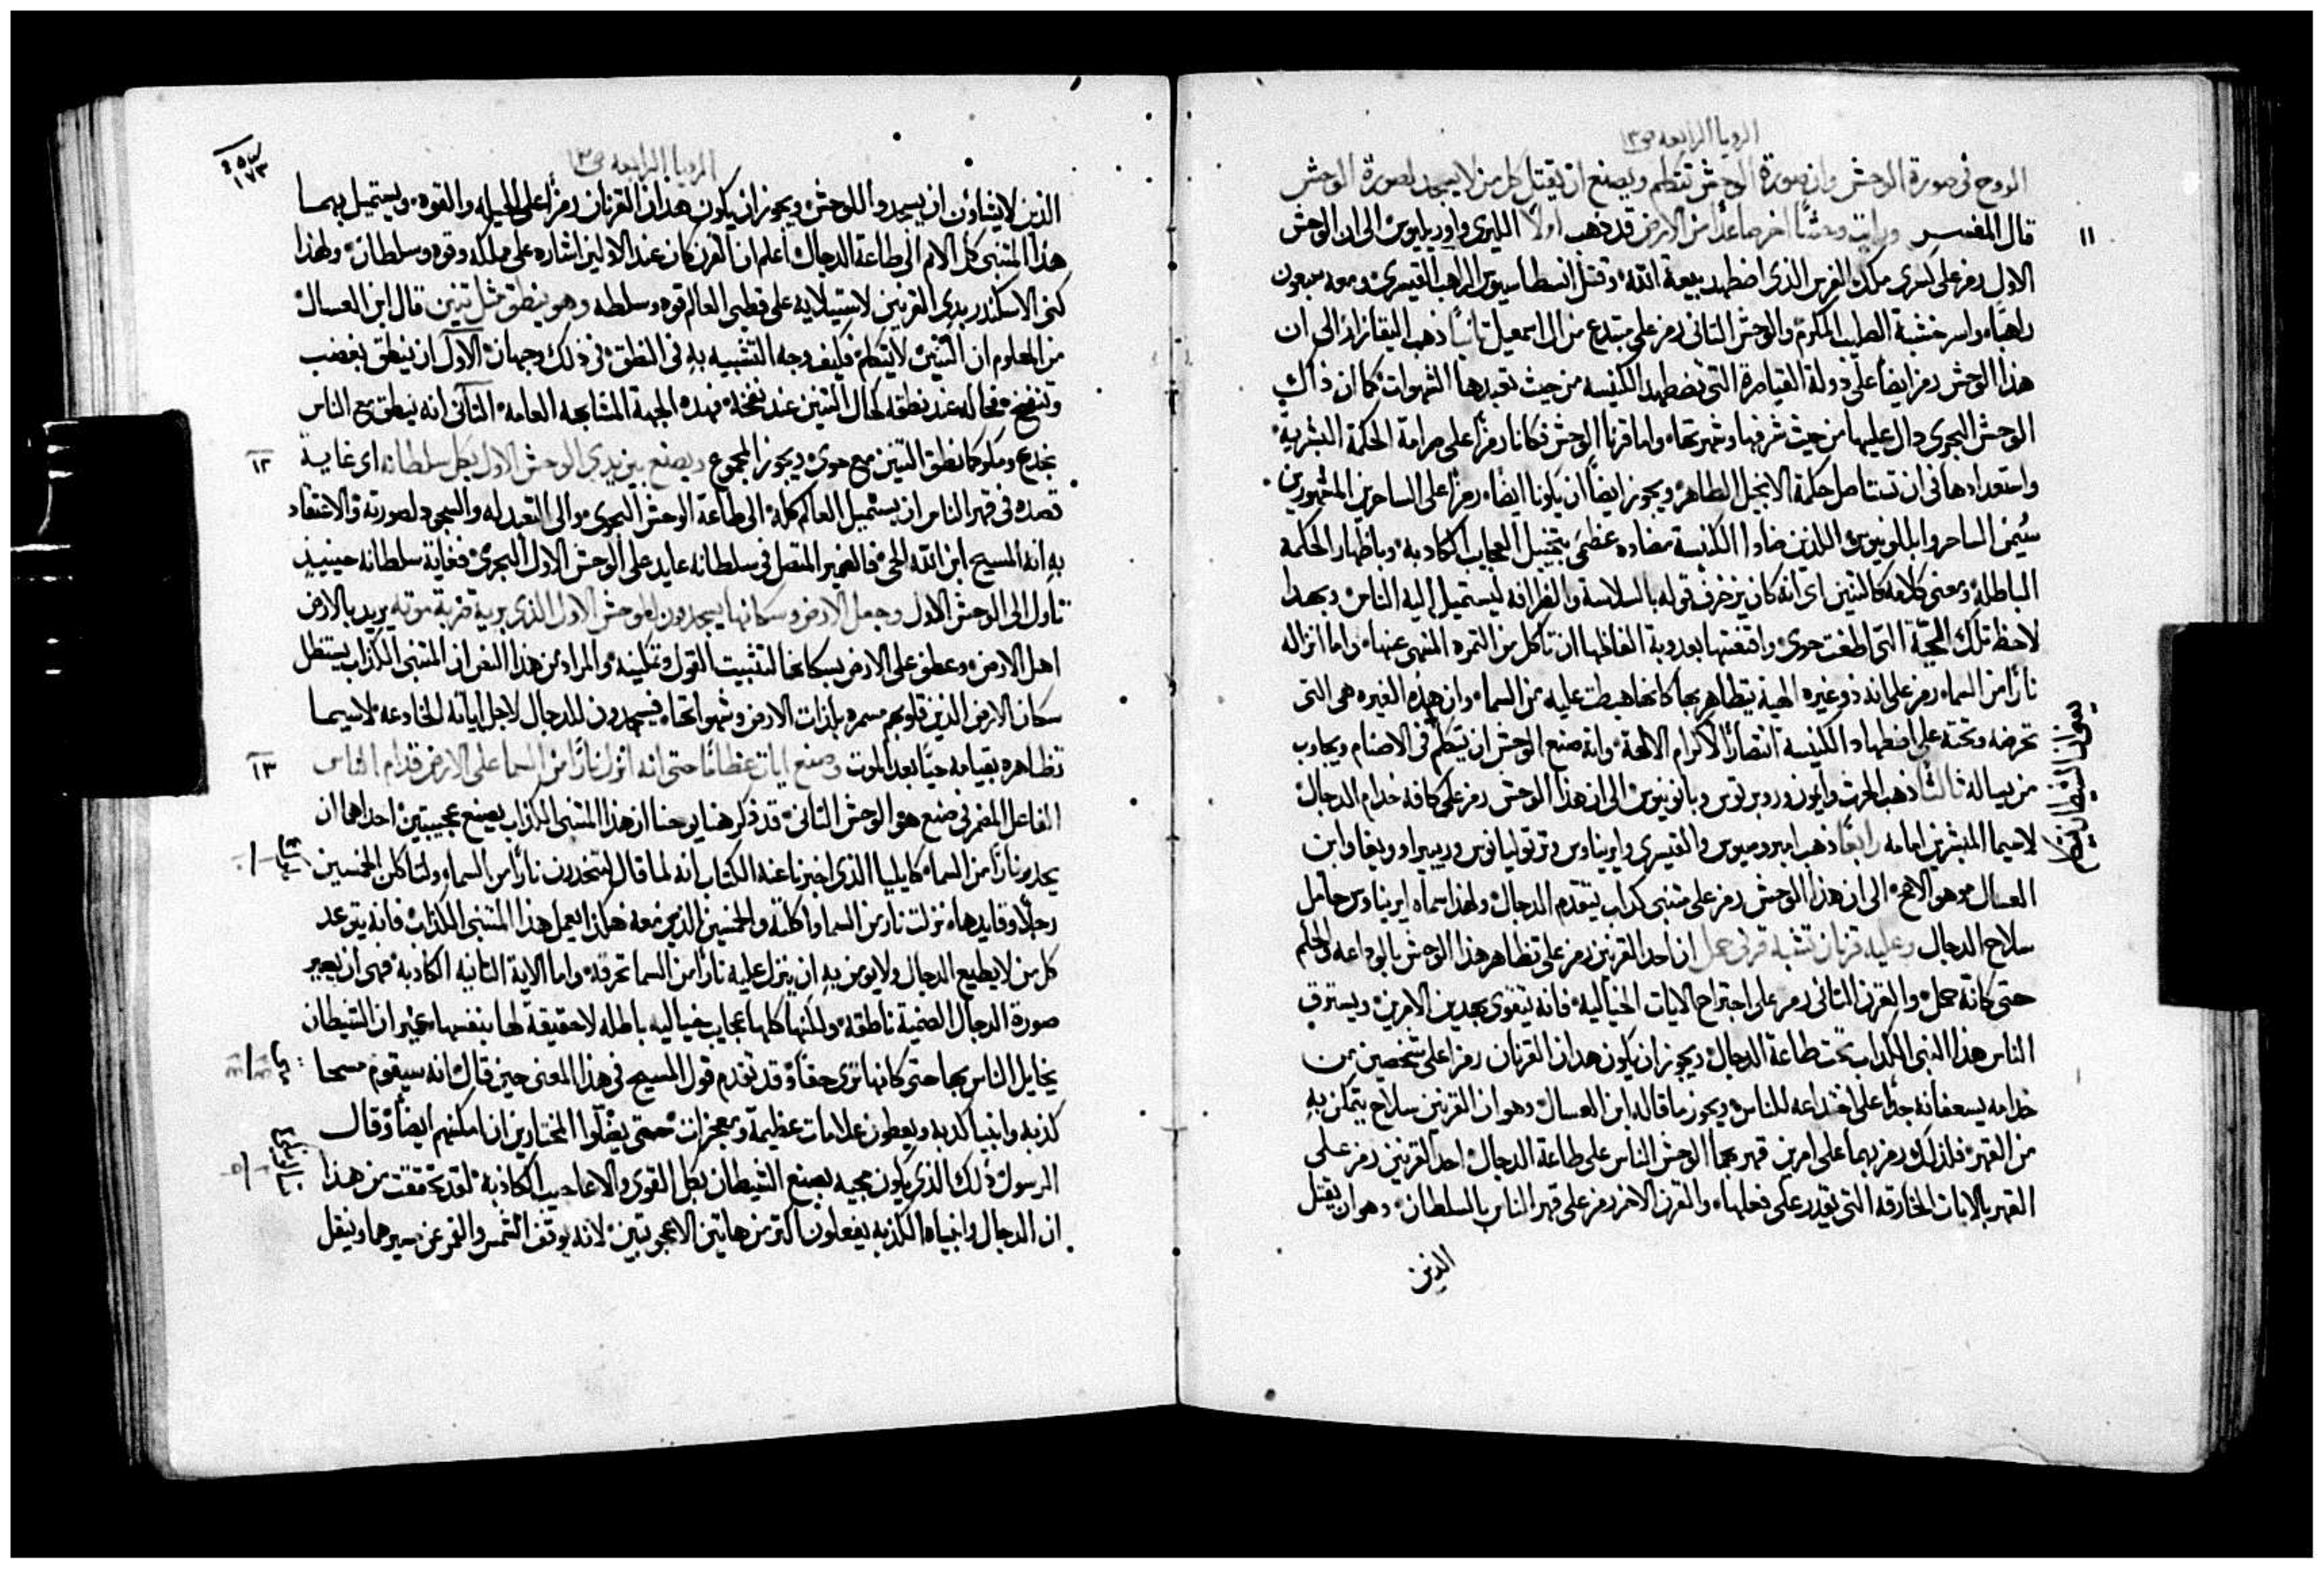 الرويا الرابعه ص١٣
الروح في صورة الوحش وان صورة الوحش تتكلم ويصنع ان يقتل كل من لا يسجد لصورة الوحش
١١
قال المفسر ورايت وحشًا اخر صاعدًا من الارض قد ذهب اولًا الليري واوريليوس الى ان الوحش
الاول رمز على كسرى ملك الفرس الذي اضطهد بيعة الله وقتل انسطاسيوس الراهب القيسري ومعه سبعون
راهبًا واسر خشبة الصليب المكرم والوحش الثاني رمز على مبتدع من ال اسمعيل ثانيًا ذهب اليقازار الى ان
هذا الوحش رمز ايضًا على دولة القياصرة التي تضطهد الكنيسه من حيث تعبدها الشهوات كما ان ذاك
الوحش البحري دال عليها من حيث شرفها وشهرتها واما قرنا الوحش فكانا رمزًا على صرامة الحكمة البشرية
واستعدادها في ان تستاصل حكمة الانجيل الطاهر ويجوز ايضًا ان يكونا ايضًا رمزًا على الساحرين المشهورين
سُيمن الساحر وابللونيوس اللذين ضادا الكنيسة مضاده عظمى بتخييل العجايب الكاذبة وباظهار الحكمة
الباطلة ومعنى كلامه كالتنين اى انه كان يزخرف قوله بالسلاسة والغرافه ليستميل اليه الناس وبهذا
لاحظ تلك الحيّة التي اطغت حوى واقنعتها بعدوبة الفاظها ان تاكل من الثمره المنهى عنها واما انزاله
نارًا من السماء رمز على انه ذو غيره الهية يتظاهر بها كانها هبطت عليه من السماء وان هذه الغيره هي التي
تحرضه وتحته على اضطهاد الكنيسة انتصارًا لاكرام الالهة وانه صنع الوحش ان يتكلم في الاصنام ويجاوب
من يساله ثالثًا ذهب الحرث وايون وروبرتوس وبانونيوس الى ان هذا الوحش رمز على كافة خدام الدجال
لاسيما المبشرين امامه رابعًا ذهب امبروسيوس والقيسري وايريناوس وترتوليانوس وريبيرا وويغا وابن
العسال وهو الاصح الى ان هذا الوحش رمز على متنبى كداب يتقدم الدجال ولهذا سماه ايريناوس حامل
سلاح الدجال وعليه قرنان تشبه قرني حمل ان احد القرنين رمز على تظاهر هذا الوحش بالوداعه والحلم
حتى كانة حمل والقرن الثاني رمز على اجتراح الايات الخياليه فانه يتقوى بهدين الامرين ويسترق
الناس هذا النبي الكداب تحت طاعة الدجال ويجوز ان يكون هدان القرنان رمزًا على شخصين من
خدامه يسعفانه جدًا على اختداعه للناس ويجوز ما قاله ابن العسال وهو ان القرنين سلاح يتمكن به
من القهر فلذلك رمز بهما على امرين قهر بهما الوحش الناس على طاعة الدجال احد القرنين رمز على
القهر بالايات الخارقه التي يقدر على فعلها والقرن الاخر رمز على قهر الناس بالسلطان وهو ان يقتل
الذين
الرويا الرابعه ص١٣
١٧٣
الذين لا يشاؤن ان يسجدوا للوحش ويجوز ان يكون هدان القرنان رمزًا على الحيله والقوه ويستميل بهما
هذا المتنبى كل الامم الى طاعة الدجال اعلم ان القرن كان عند الاولين اشاره على مملكه وقوه وسلطان ولهذا
كنى الاسكندر بدى القرنين لاستيلايه على قطبى العالم قوه وسلطه وهو ينطق مثل تنين قال ابن العسال
من المعلوم ان التنين لا يتكلم فكيف وجه التشبيه به في النطق في ذلك وجهان الاول ان ينطق بغضب
وتنفخ فحاله عند نطقه كحال التنين عند نفخه فهذه الجهة المشابهه العامه الثاني انه ينطق مع الناس
١٢
بخدع ومكر كما نطق التنين مع حوى ويجوز المجموع ويصنع بين يدى الوحش الاول بكل سلطانه اى غاية
قصده في قهر الناس ان يستميل العالم كله الى طاعة الوحش البحرى والى التعبد له والسجود لصورته والاعتقاد
به انه المسيح ابن الله الحى فالضمير المتصل في سلطانه عايد على الوحش الاول البحرى فغاية سلطانه حينيذٍ
تاول الى الوحش الاول وجعل الارض وسكانها يسجدون للوحش الاول الذي بريه ضربة موته يريد بالارض
اهل الارض وعطف على الارض بسكانها لتثبيت القول وتمكينه والمراد من هذا النص ان المتنبى الكذاب يستظل
سكان الارض الذين قلوبهم مسمره بلذات الارض وشهواتها فيسجدون للدجال لاجل اياته الخادعه لاسيما
١٣
تظاهره بقيامه حيًا بعد الموت وصنع ايات عظامًا حتى انه انزل نارًا من السما على الارض قدام الناس
الفاعل المضمر في صنع هو الوحش الثاني قد ذكر هنا يوحنا ان هذا المتنبى الكذاب يصنع عجيبتين احداهما ان
يحدر نارًا من السماء كايليا الذى اخبرنا عنه الكتاب انه لما قال لتنحدرن نارًا من السماء ولتاكلن الخمسين
رجلًا وقايدها نزلت نار من السما واكلته والخمسين الذين معه هكذا يعمل هذا المتنبى الكذاب فانه يتوعد
كل من لا يطيع الدجال ولا يومن به ان ينزل عليه نارًا من السما تحرقه واما الاية الثانيه الكاذبة فهى ان يصير
صورة الدجال الصنمية ناطقه ولكنها كلها عجايب خياليه باطله لا حقيقة لها بنفسها غير ان الشيطان
يخايل الناس بها حتى كانها ترى حقًا وقد تقدم قول المسيح في هذا المعنى حين قال انه سيقوم مسحا
كذبه وانبيا كذبه ويعطون علامات عظيمة ومعجزات حتى يضلوا المختارين ان امكنهم ايضًا وقال
الرسول ذلك الذي يكون مجيه بصنع الشيطان بكل القوى والاعاجيب الكاذبة لقد تحققت من هذا
ان الدجال وانبياه الكذبه يفعلون اكثر من هاتين الاعجوبتين لانه يوقف الشمس والقمر عن سيرهما وينقل